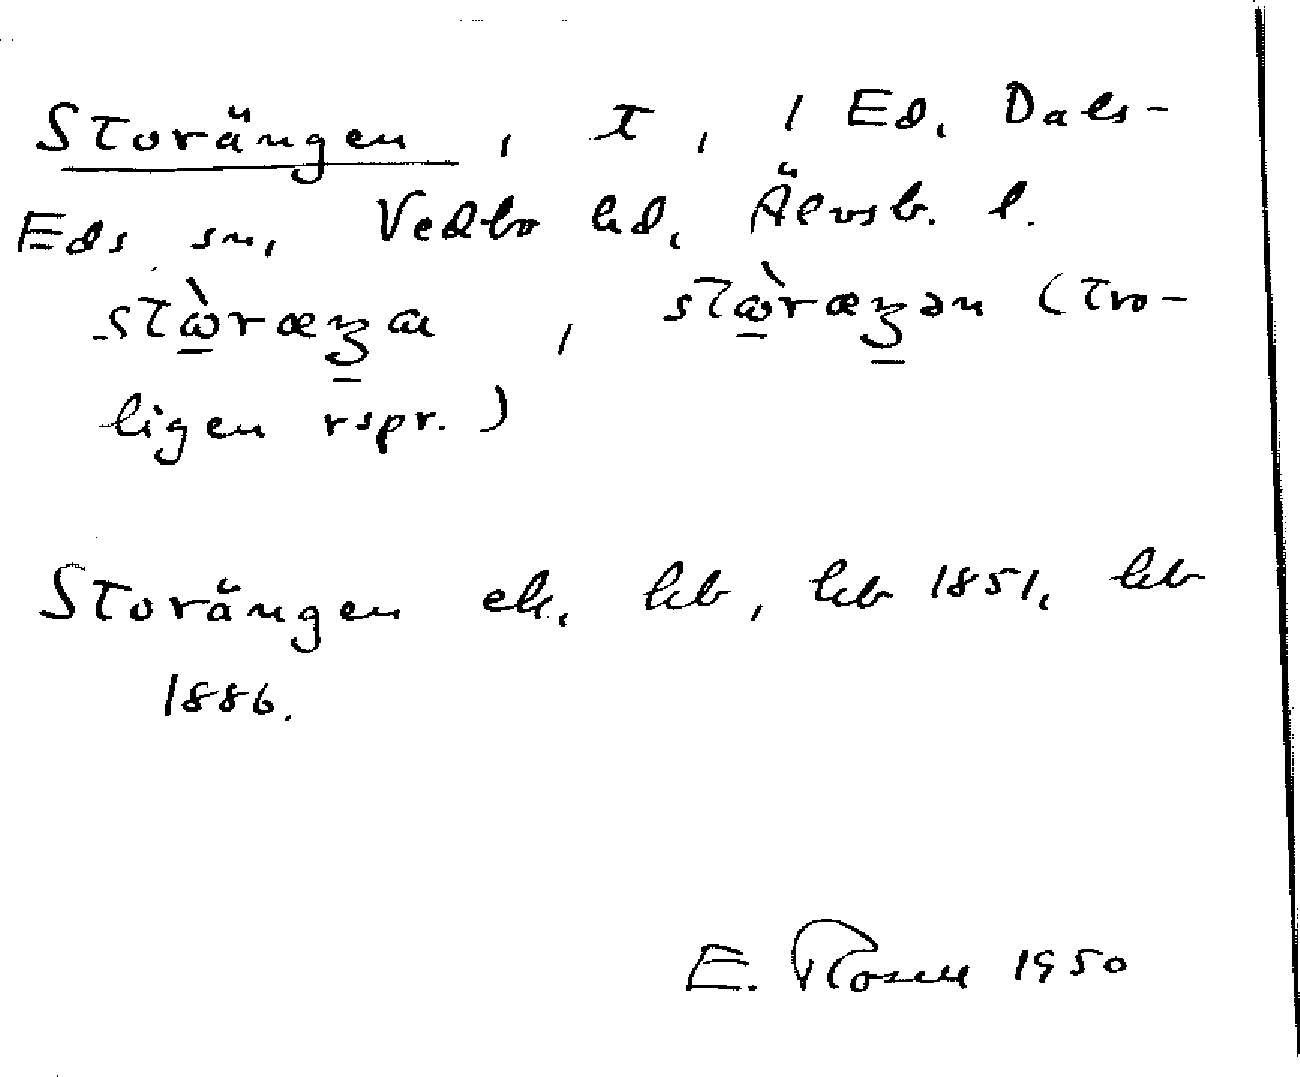 Storängen, t, i Ed, Dals-
Eds sn, Vedbo hd, Älvsb. l.
stὼ̲ræʒ̲a, stὼ̲ræʒ̲ən (tro-
ligen rspr.)
Storängen ek, kb, kb 1851, kb
1886.
E. Rosell 1950